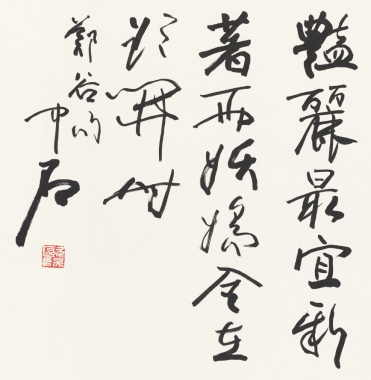 豔麗最宜新
著雨妖嬈全在
欲開時
鄭谷句
中石